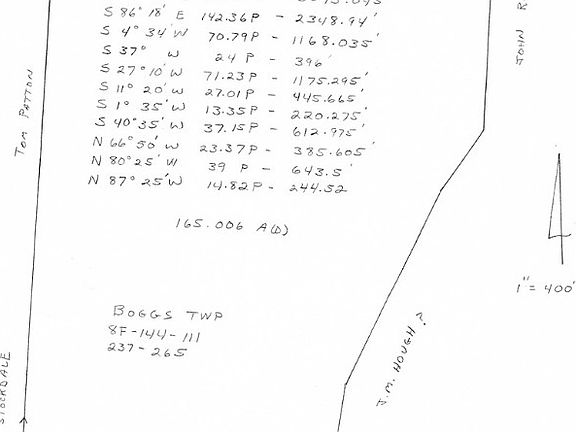 S 86° 18' E 142.36P - 2348.94'
S 4° 34' W 70.79P - 1168.035'
S 37° W 24 P - 396'
S 27° 10' W 71.23P - 1175.295'
S 11° 20' W 27.01P - 445.665'
S 1° 35' W 13.35P - 220.275'
S 40° 35' W 37.15P - 612.975'
N 66° 50' W 23.37P - 385.605'
N 80° 25' W 39 P - 643.5'
N 87° 25' W 14.82P - 244.52
165.006 A(D)
BOGGS TWP
8F-144-111
237-265
TOM PATTON
STOCKDALE
JOHN R
J.M. HOUGH?
1" = 400'